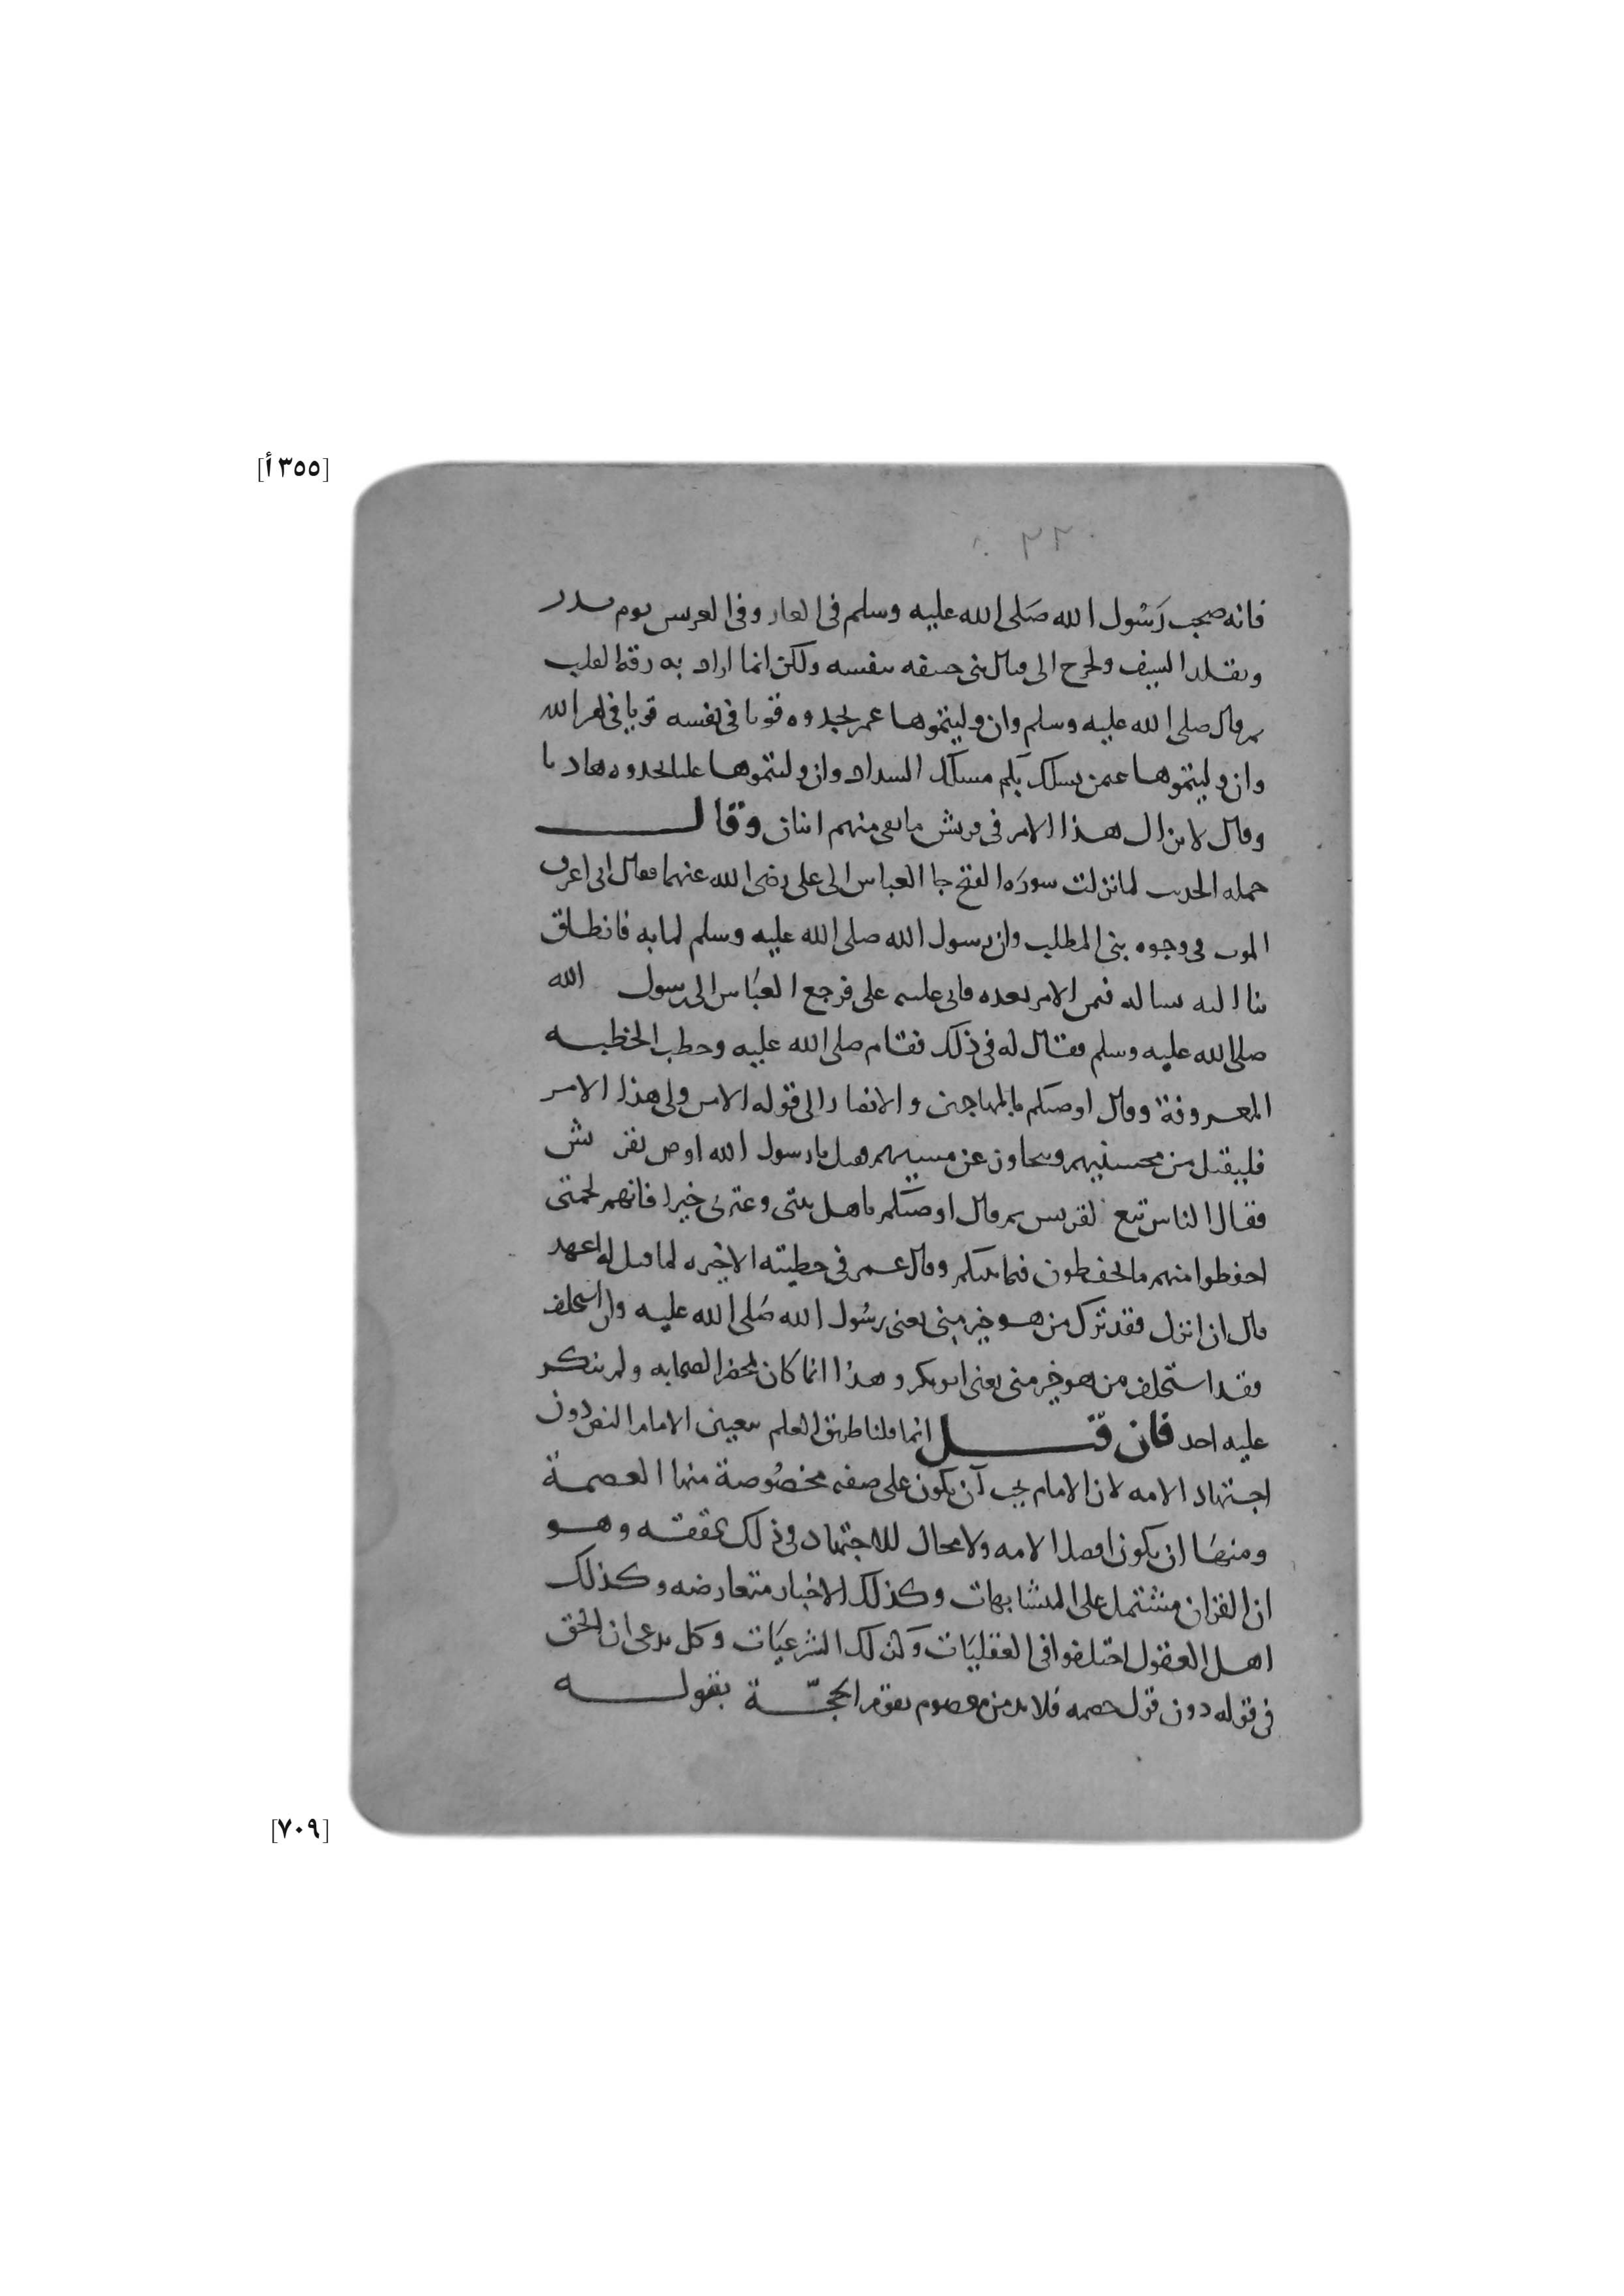 [٣٥٥ أ]
٢٢٠
فانه صحب رَسُول الله صَلى الله عليه وسلم فى الغار وفى العريس يوم بدر
وتقلد السيف وخرج الى قتال بنى حنيفه بنفسه ولكن انما اراد به رقة القلب
ثم قال صلى الله عليه وسلم وان وليتموها عمر تجدوه قويا فى نفسه قويا فى امر الله
وان وليتموها عثمن يسلك بكم مسلك السداد وان وليتموها عليا تجدوه هاديا
وقال لا يزال هذا الامر فى قريش ما بقى منهم اثنان وقال
حمله الحديث لما نزلت سورَه الفتح جا العباس الى على رضى الله عنهما فقال انى اعرف
الموت فى وجوه بنى المطلب وان رسول الله صلى الله عليه وسلم لما به فانطلق
بنا اليه نساله فمن الامر بعده فابى عليه على فرجع العبَاس الى رسول الله
صلى الله عليه وسلم فقال له فى ذلك فقام صلى الله عليه وخطب الخطبه
المعروفة وقال اوصيكم بالمهاجرين والانصار الى قوله الا من ولى هذا الامر
فليقبل من محسنيهم ويتجاوز عن مسيهم فقيل يا رسول الله اوص بقريش
فقال الناس تبع لقريش ثم قال اوصيكم باهل بيتى وعترتى خيرا فانهم لحمتى
احفظوا منهم ما تحفظون فيما بينكم وقال عمر فى خطبته الاخيره لما قيل له اعهد
قال ان اترك فقد ترك من هو خير منى يعنى رسُول الله صَلى الله عليه وان استخلف
فقد استخلف من هو خير منى يعنى ابو بكر وهذا انما كان بمحضر الصحابه ولم ينكر
عليه احد فان قيل انما قلنا طريق العلم بتعيين الامام النص دون
اجتهاد الامه لان الامام يجب ان يكون على صفه مخصُوصة منها العصمة
ومنهَا ان يكون افضل الامه ولا مجال للاجتهاد فى ذلك تحققه وهو
ان القران مشتمل على المتشابهات وكذلك الاخبار متعارضه وكذلك
اهل العقول اختلفوا فى العقليَات وكذلك الشرعيَات وكل يدعى ان الحق
فى قوله دون قول خصمه فلا بد من معصوم يقوم الحجّة بقوله
[٧٠٩]